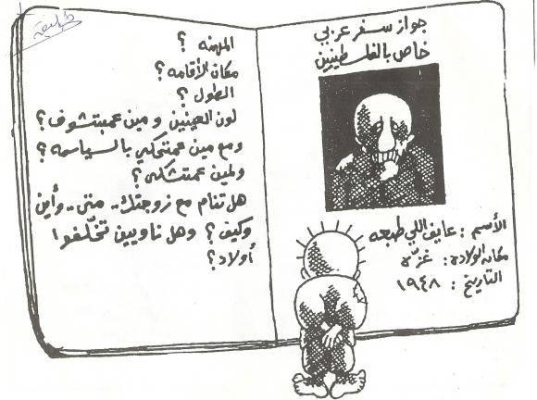 جواز سفر عربي
خاص بالفلسطينيين
الأسم : عايف اللي طبعه
مكان الولادة : غزّه
التاريخ : ١٩٤٨
المهنه ؟
مكان الأقامه ؟
الطول ؟
لون العينين و مين عمبتشوف ؟
ومع مين عمتحكي بالسياسه ؟
ولمين عمتشكي ؟
هل تنام مع زوجتك .. متى .. وأين
وكيف ؟ وهل ناويين تخلّفوا
أولاد ؟